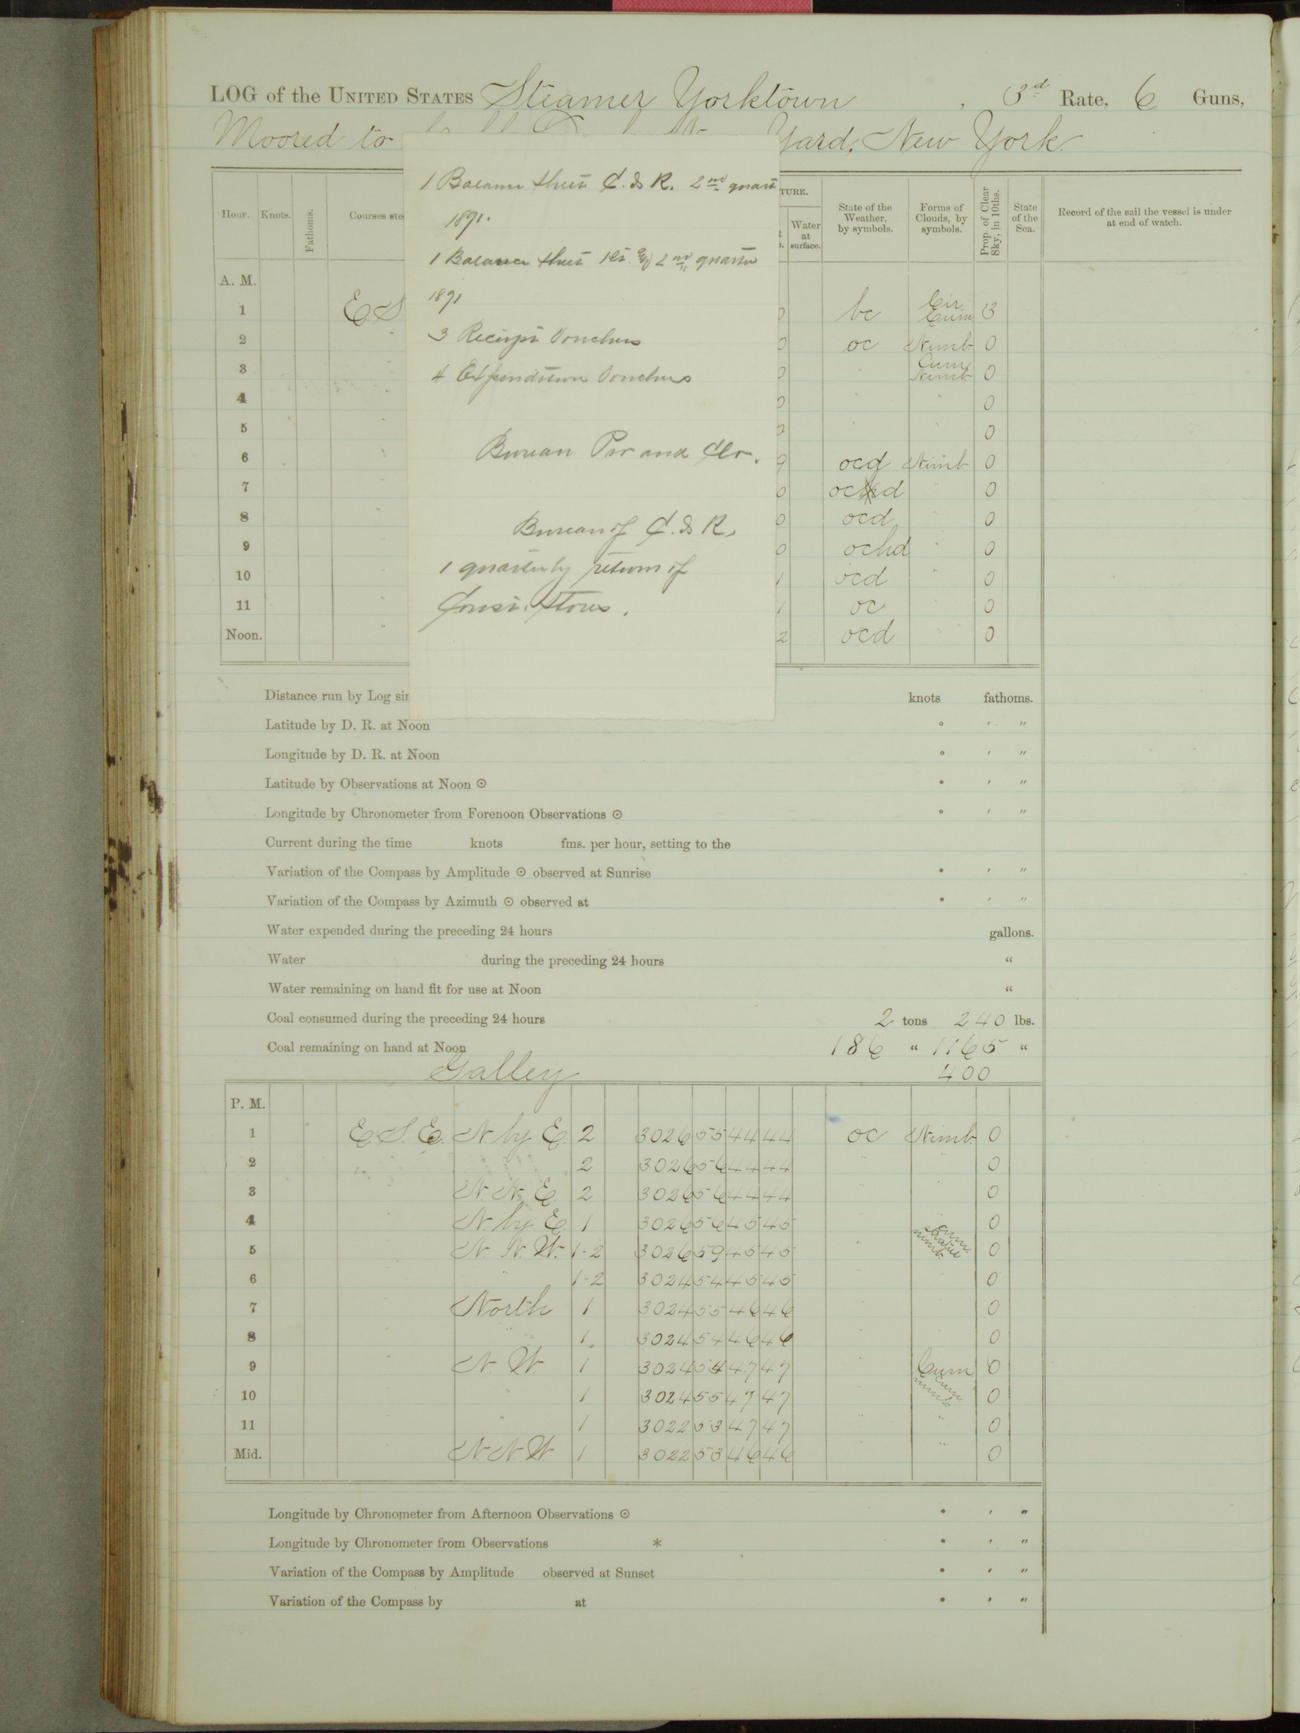 LOG of the UNITED STATES Steamer Yorktown , 3rd Rate, 6 Guns,
Moored to Yard, New York
1 Balance sheet C. & R. 2nd quart
1891.
1 Balance sheet 2nd quarter
1891
3 Receipt Vouchers
4 Expenditure Vouchers
Bureau Pro and Clo.
Bureau of C. & R.
1 quarterly return of
Const. Stores.
Hour. Knots. Fathoms. Courses stee TURE. Water at surface. State of the Weather, by symbols. Forms of Clouds, by symbols. Prop. of Clear Sky, in 10ths. State of the Sea. Record of the sail the vessel is under at end of watch.
A. M.
1 E S 0 bc Cir Cum 3
2 " 0 oc Nimb 0
3 0 " Cum Nimb 0
4 0 " " 0
5 " " 0
6 9 ocd Nimb 0
7 0 0
8 0 ocd " 0
9 0 ochd " 0
10 1 ocd " 0
11 1 oc " 0
Noon. " 2 ocd 0
Distance run by Log sin knots fathoms.
Latitude by D. R. at Noon ° ′ ″
Longitude by D. R. at Noon ° ′ ″
Latitude by Observations at Noon ☉ ° ′ ″
Longitude by Chronometer from Forenoon Observations ☉ ° ′ ″
Current during the time knots fms. per hour, setting to the
Variation of the Compass by Amplitude ☉ observed at Sunrise ° ′ ″
Variation of the Compass by Azimuth ☉ observed at ° ′ ″
Water expended during the preceding 24 hours gallons.
Water during the preceding 24 hours “
Water remaining on hand fit for use at Noon “
Coal consumed during the preceding 24 hours 2 tons 240 lbs.
Coal remaining on hand at Noon 186 “ 1165 “
Galley 400
P. M.
1 E S E. N by E 2 3026 55 44 44 oc Nimb 0
2 2 3026 56 44 44 " " 0
3 N N E 2 3026 56 44 44 " 0
4 N by E 1 3026 56 45 45 0
5 N N W. 1-2 3026 59 45 45 " Cum Stratus Nimb 0
6 " 1-2 3024 54 45 45 0
7 North 1 3024 55 46 46 " 0
8 " 1 3024 54 46 46 0
9 N W. 1 3024 54 47 47 " Cum 0
10 1 3024 55 47 47 Cum Nimb 0
11 " 1 3022 53 47 47 " " 0
Mid. N N W 1 3022 53 46 46 " 0
Longitude by Chronometer from Afternoon Observations ☉ ° ′ ″
Longitude by Chronometer from Observations * ° ′ ″
Variation of the Compass by Amplitude observed at Sunset ° ′ ″
Variation of the Compass by at ° ′ ″